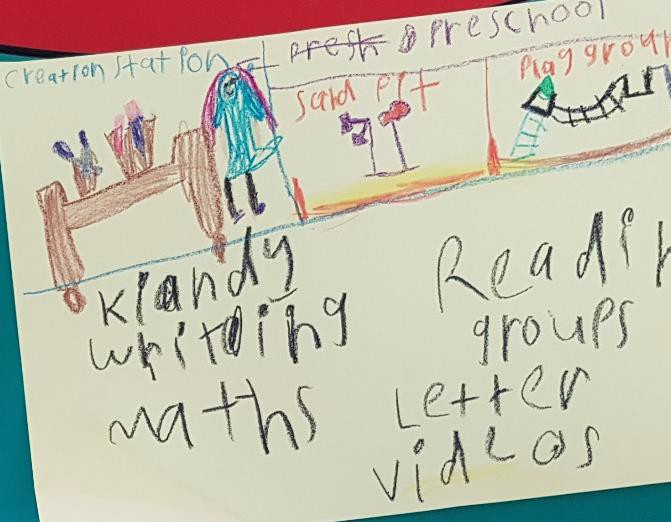 creation station
preschool
sand pit
Play group
klandy
writing
maths
Readin
groups
Letter
videos